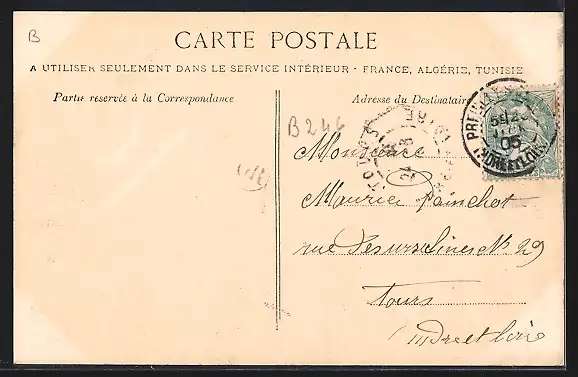 B
CARTE POSTALE
A UTILISER SEULEMENT DANS LE SERVICE INTÉRIEUR - FRANCE, ALGÉRIE, TUNISIE
Partie réservée à la Correspondance
Adresse du Destinataire
B246
Monsieur
Maurice Poinchot
rue des ursulines No 29
Tours
Indre et Loire